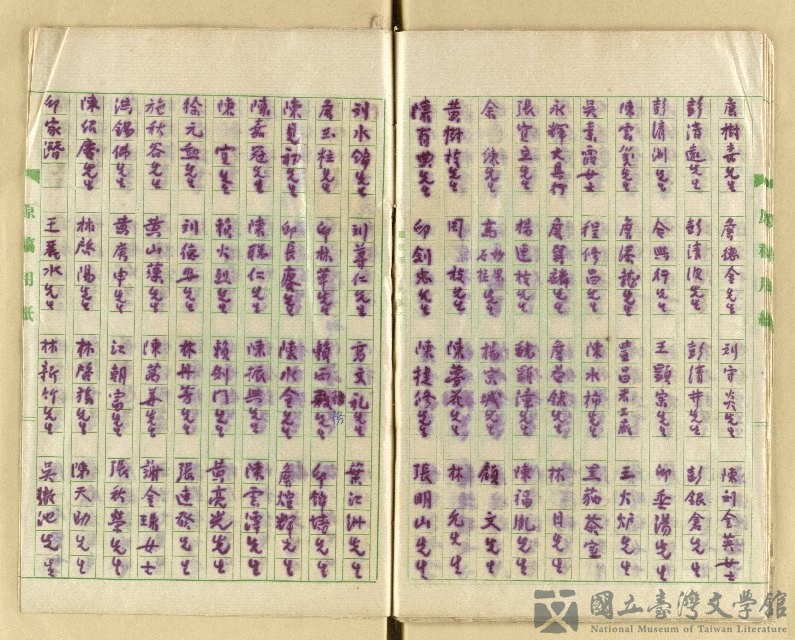 詹樹嘉先生 詹德金先生 劉守炎先生 陳劉金英女士
彭清遠先生 彭清波先生 彭清井先生 彭銀倉先生
彭清渊先生 余熙行先生 王顯宗先生 卯垂湯先生
陳雲災先生 詹湛龍先生 豊昌 王火炉先生
吳素霞女士 程修昌先生 陳水柿先生 黑茄茶室
永輝大具行 詹昇麟先生 詹益銀先生 林日先生
張寬立先生 楊連枝先生 魏顕璋先生 陳福胤先生
余 先生 高 先生 楊宗城先生 顧文先生
黃樹枝先生 周 枝先生 陳夢花先生 林允先生
陳有典先生 卯劍忠先生 陳捷修先生 張明山先生
刘水錦先生 刘尊仁先生 高文礼先生 葉江洲先生
詹玉柱先生 卯林華先生 賴西 先生 卯錦塘先生
陳見初先生 卯長慶先生 陳水金先生 詹煌輝先生
陳嘉冠先生 陳聰仁先生 陳振興先生 陳雲潭先生
陳 宜先生 賴火烈先生 賴剑门先生 黃亮光先生
徐元 先生 刘德 先生 林丹芳先生 張連發先生
施秋谷先生 黃山藻先生 陳萬善先生 謝金珠女士
洪錫佛先生 黃庚申先生 江朝富先生 張秋螢先生
陳绍慶先生 林啓陽先生 林啓裕先生 陳天助先生
卯家潜 王義水先生 林新竹先生 吳 池先生
原稿用紙
原稿用紙
國立臺灣文學館
National Museum of Taiwan Literature